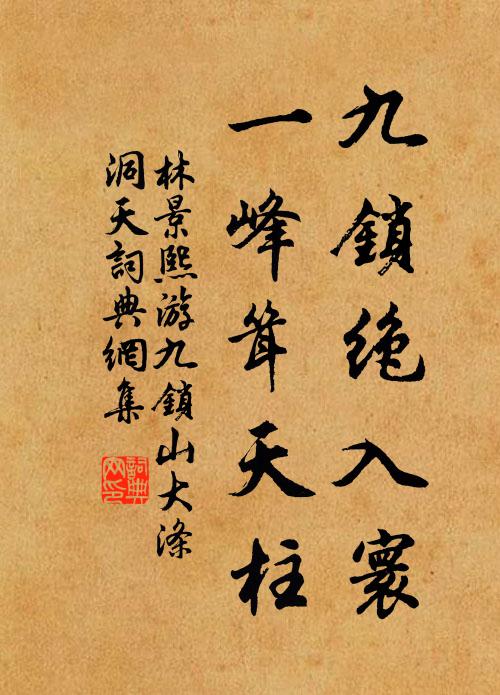 九鎖絶入寰
一峰聳天柱
林景熙游九鎖山大滌
洞天詞典網集
詞典
网印